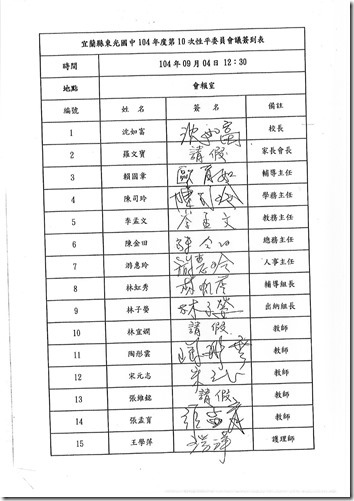 宜蘭縣東光國中104年度第10次性平委員會議簽到表
時間 104年09月04日 12:30
地點 會報室
編號 姓名 簽名 備註
1 沈如富 沈如富 校長
2 羅文寶 請假 家長會長
3 賴固章 輔導主任
4 陳司玲 陳司玲 學務主任
5 李孟文 李孟文 教務主任
6 陳金田 總務主任
7 游惠玲 游惠玲 人事主任
8 林虹秀 輔導組長
9 林子縈 林子縈 出納組長
10 林宜嫻 請假 教師
11 陶彤雲 教師
12 宋元志 教師
13 張維銘 請假 教師
14 張孟育 張孟育 教師
15 王學萍 護理師